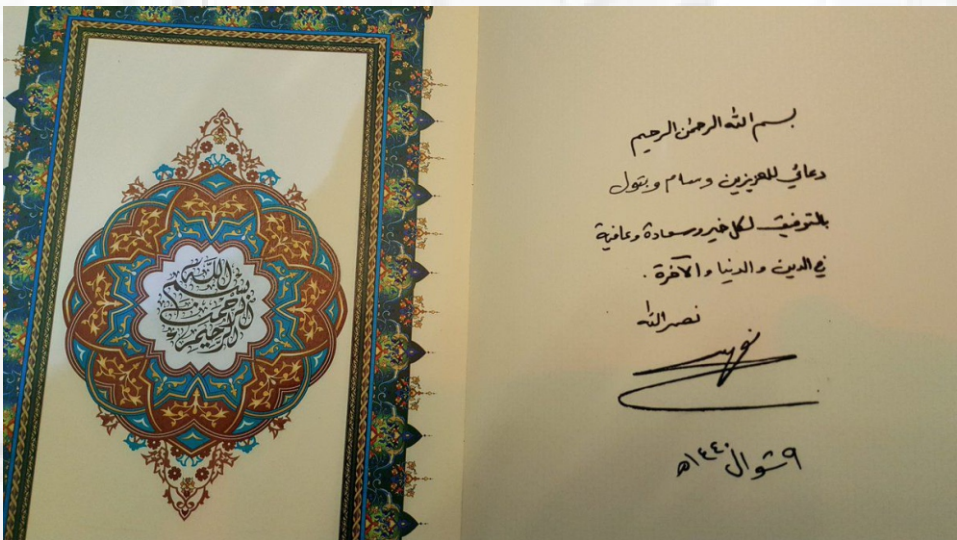 بسم الله الرحمن الرحيم
بسم الله الرحمن الرحيم
دعائي للعزيزين وسام وبتول
بالتوفيق لكل خير وسعادة وعافية
في الدين والدنيا والآخرة.
نصرالله
٩ شوال ١٤٤٠هـ